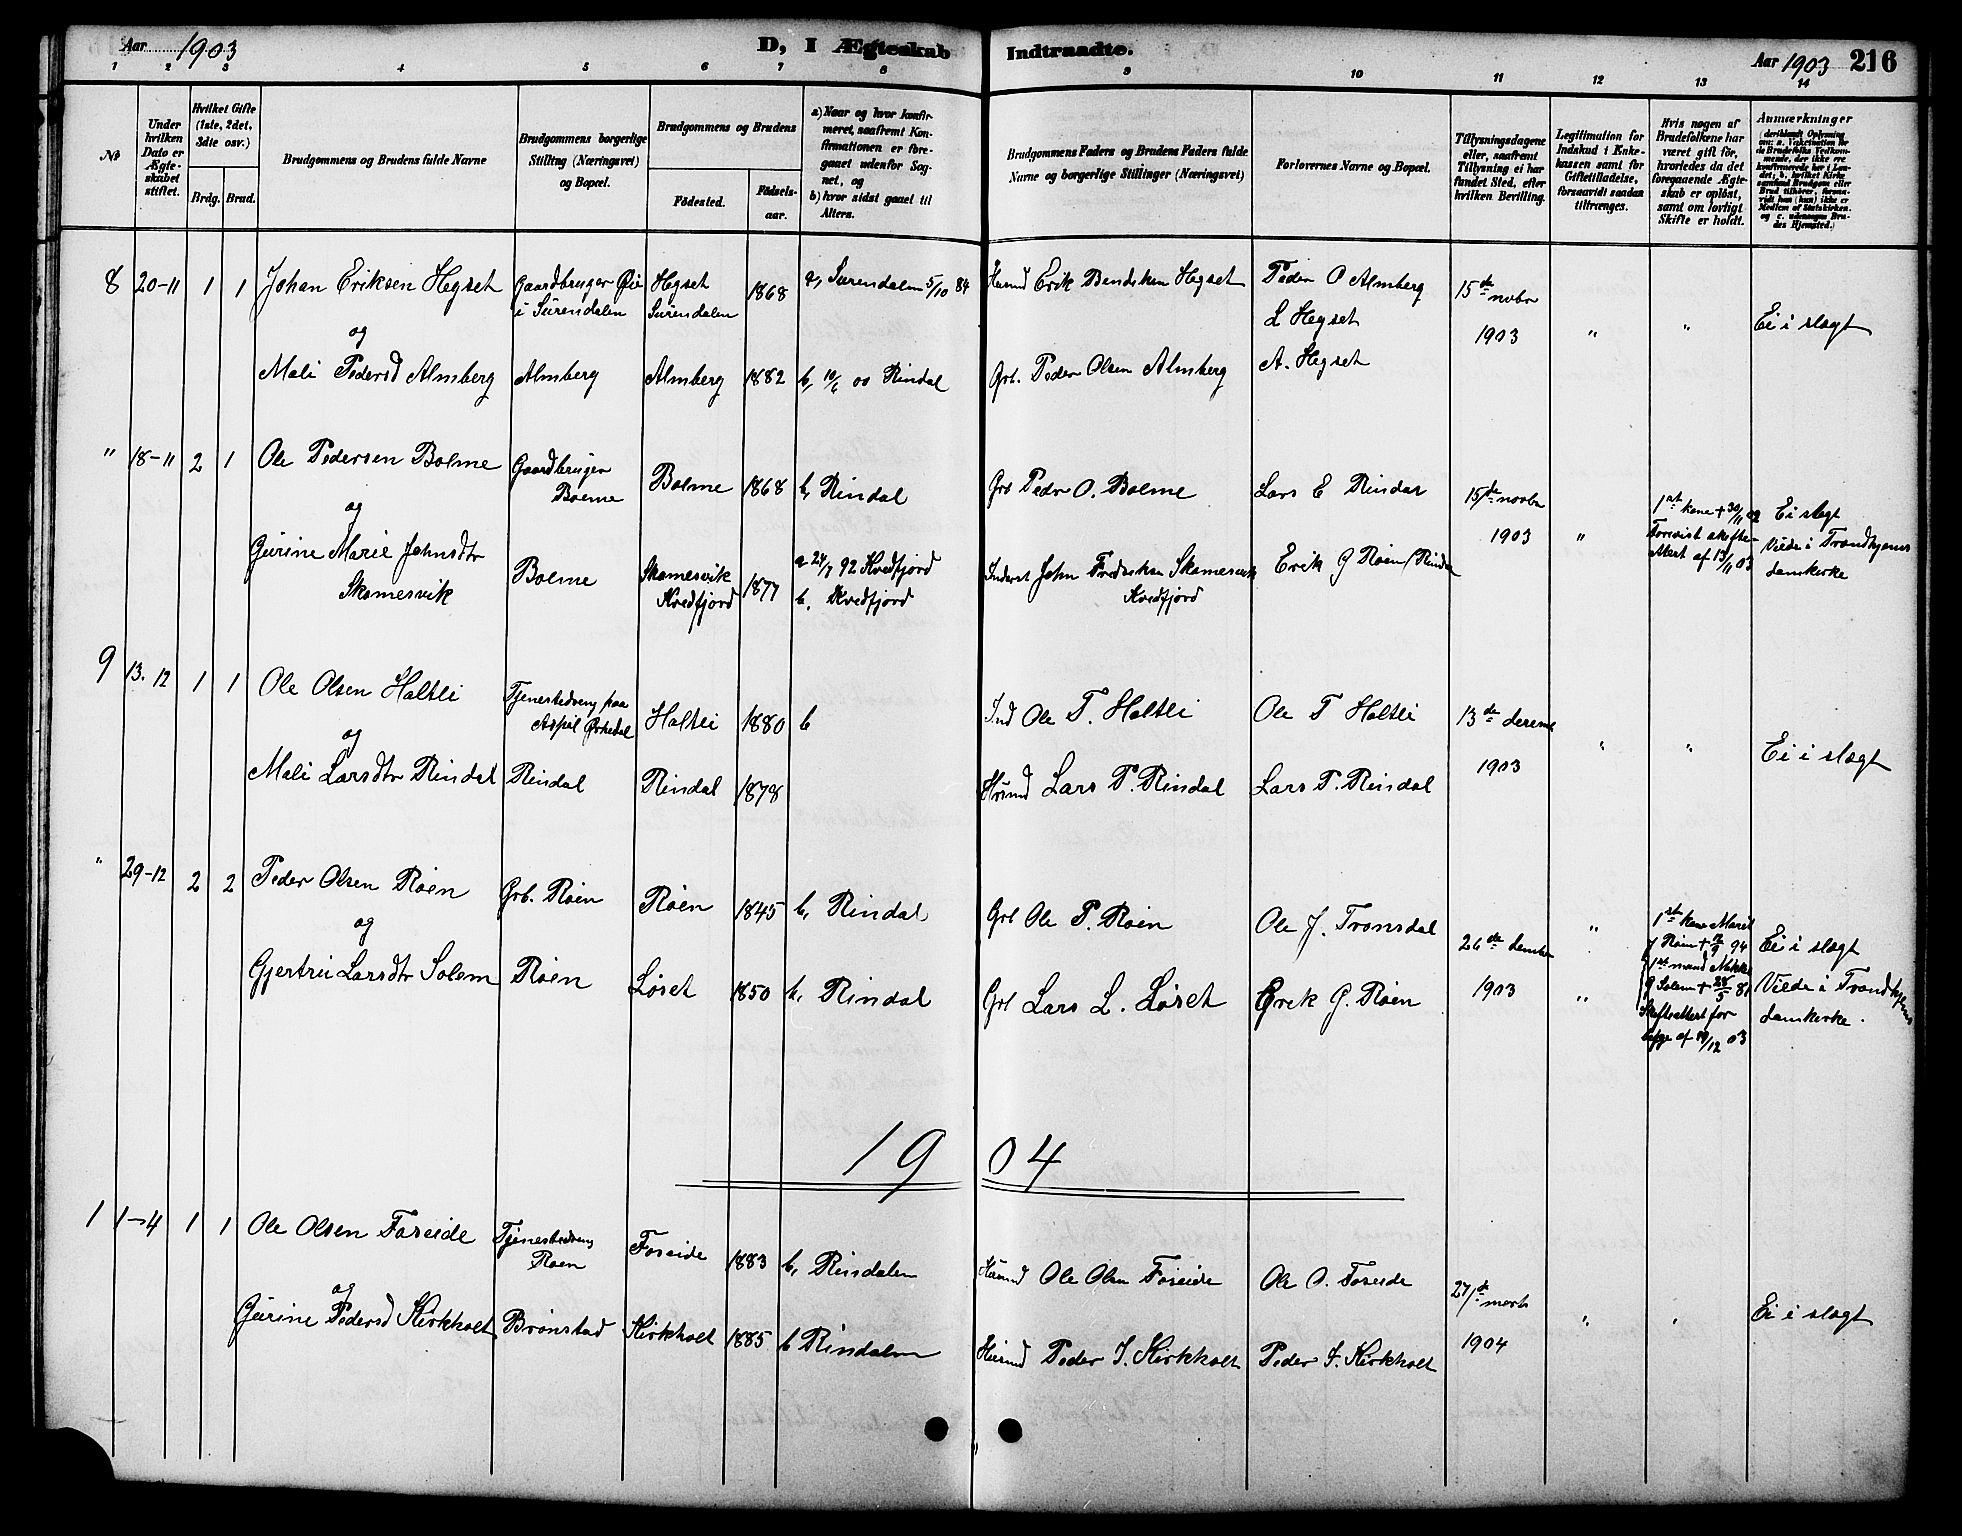 Aar 1903
D, I Ægteskab Indtraadte.
Aar 1903 216
1 2 3 4 5 6 7 8 9 10 11 12 13 14
№
Under hvilken Dato er Ægteskabet stiftet.
Hvilket Gifte (1ste, 2det, 3die osv.)
Brdg. Brud.
Brudgommens og Brudens fulde Navne
Brudgommens borgerlige Stilling (Næringsvei) og Bopæl.
Brudgommens og Brudens
Födested. Födselsaar.
a) Naar og hvor konfirmeret, saafremt Konfirmationen er foregaaet udenfor Sognet, og
b) hvor sidst gaaet til Alters.
Brudgommens Faders og Brudens Faders fulde Navne og borgerlige Stillinger (Næringsvei)
Forlovernes Navne og Bopæl.
Tillysningsdagene eller, saafremt Tillysning ei har fundet Sted, efter hvilken Bevilling.
Legitimation for Indskud i Enkekassen samt for Giftetilladelse, forsaavidt saadan tiltrænges.
Hvis nogen af Brudefolkene har været gift før, hvorledes da det foregaaende Ægteskab er oplöst, samt om lovligt Skifte er holdt.
Anmærkninger
8 20-11 1 1 Johan Eriksen Hegset Gaardbruger Øie i Surendalen Hegset Surendalen 1868 a, Surendalen 5/10 84 Husmd Erik Bendiksen Hegset Peder O Almberg 15de novbr
L Hegset 1903 " " Ei i slægt
og
Mali Pedersd Almberg Almberg Almberg 1882 b, 10/6 00 Rindal Grb. Peder Olsen Almberg A. Hegset
" 18-11 2 1 Ole Pedersen Bolme Gaardbruger Bolme Bolme 1868 b, Rindal Grb Pedr O. Bolme Lars E Rindal 15de novbr
og 1903 " 1ste kone + 30/11 02 Ei i slægt
Gurine Marie Johnsdtr Skamesvik Bolme Skamesvik Kvedfjord 1877 a 24/7 92 Kvedfjord b, Kvedfjord Inderst John Fredriksen Skamesvik Kvedfjord Erik G Røen Rindal
Forevist skifteattest af 13/11 03 Viede i Trondhjems domkirke
9 13.12 1 1 Ole Olsen Holtli Tjenestedreng paa Orkedal Holtli 1880 b Ind Ole T. Holtli Ole T Holtli 13de
og " " Ei i slægt
Mali Larsdtr Rindal Rindal Rindal 1878 Husmd Lars P. Rindal Lars P. Rindal 1903
" 29-12 2 2 Peder Olsen Røen Grb. Røen Røen 1845 b, Rindal Grb Ole P. Røen Ole J. Tronsdal 26de
" 1ste kone Marit Røen + 94 Ei i slægt
og
Gjertru Larsdtr Solem Røen Løset 1850 b, Rindal Grb Lars L. Løset Erik G. Røen 1903
" 1ste mand G Solem + 28/5 81 Skifteattest for begge af 19/12 03 Viede i Trondhjems domkirke.
1904
1 1-4 1 1 Ole Olsen Foseide Tjenestedreng Røen Foseide 1883 b, Rindalen Husmd Ole Olsen Foseide Ole O. Foseide 27de marts
og " " Ei i slægt
Gurine Pedersd Kirkholt Brønstad Kirkholt 1885 b Rindalen Husmd Peder I. Kirkholt Peder I. Kirkholt 1904